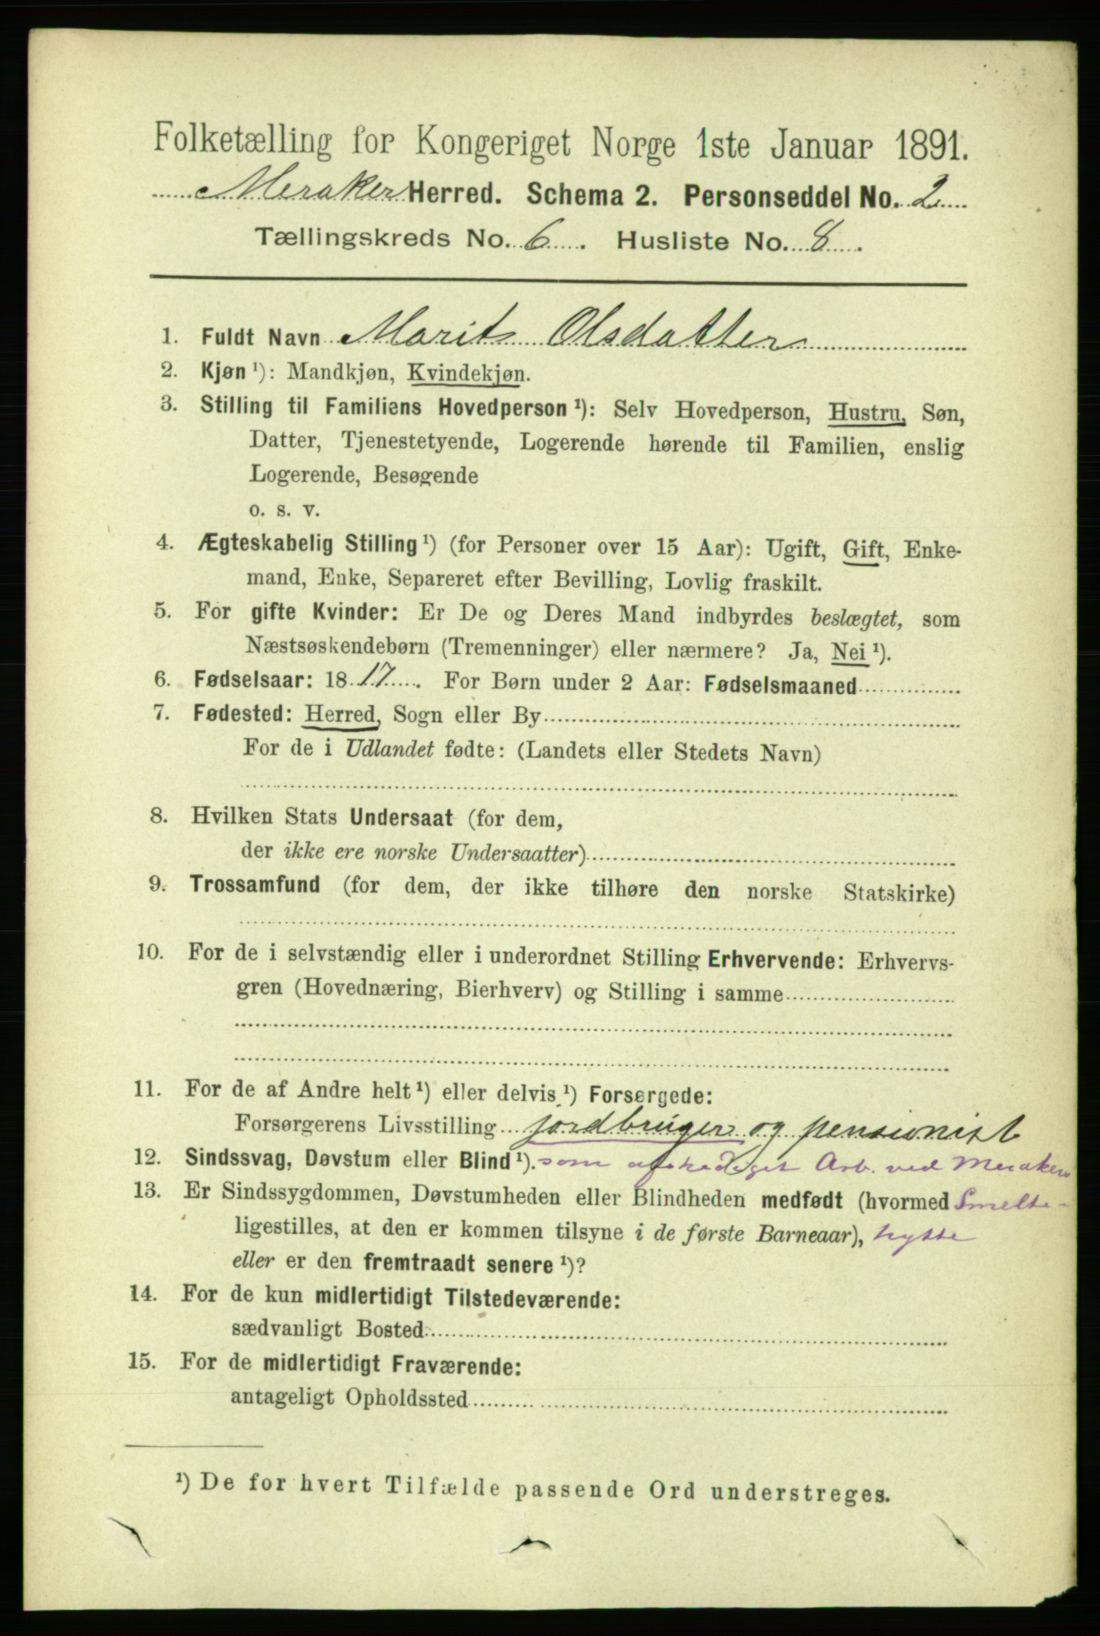 Folketælling for Kongeriget Norge 1ste Januar 1891.
Meraker Herred. Schema 2. Personseddel No. 2
Tællingskreds No. 6. Husliste No. 8.
1. Fuldt Navn Marit Olsdatter
2. Kjøn ¹): Mandkjøn, Kvindekjøn.
3. Stilling til Familiens Hovedperson ¹): Selv Hovedperson, Hustru, Søn,
Datter, Tjenestetyende, Logerende hørende til Familien, enslig
Logerende, Besøgende
o. s. v.
4. Ægteskabelig Stilling ¹) (for Personer over 15 Aar): Ugift, Gift, Enke-
mand, Enke, Separeret efter Bevilling, Lovlig fraskilt.
5. For gifte Kvinder: Er De og Deres Mand indbyrdes beslægtet, som
Næstsøskendebørn (Tremenninger) eller nærmere? Ja, Nei ¹).
6. Fødselsaar: 1817. For Børn under 2 Aar: Fødselsmaaned
7. Fødested: Herred, Sogn eller By
For de i Udlandet fødte: (Landets eller Stedets Navn)
8. Hvilken Stats Undersaat (for dem,
der ikke ere norske Undersaatter)
9. Trossamfund (for dem, der ikke tilhøre den norske Statskirke)
10. For de i selvstændig eller i underordnet Stilling Erhvervende: Erhvervs-
gren (Hovednæring, Bierhverv) og Stilling i samme
11. For de af Andre helt ¹) eller delvis ¹) Forsørgede:
Forsørgerens Livsstilling jordbruger og pensionist
12. Sindssvag, Døvstum eller Blind ¹). som afskediget Arb. ved Merakers
13. Er Sindssygdommen, Døvstumheden eller Blindheden medfødt (hvormed Smelte-
ligestilles, at den er kommen tilsyne i de første Barneaar), hytte
eller er den fremtraadt senere ¹)?
14. For de kun midlertidigt Tilstedeværende:
sædvanligt Bosted
15. For de midlertidigt Fraværende:
antageligt Opholdssted
¹) De for hvert Tilfælde passende Ord understreges.